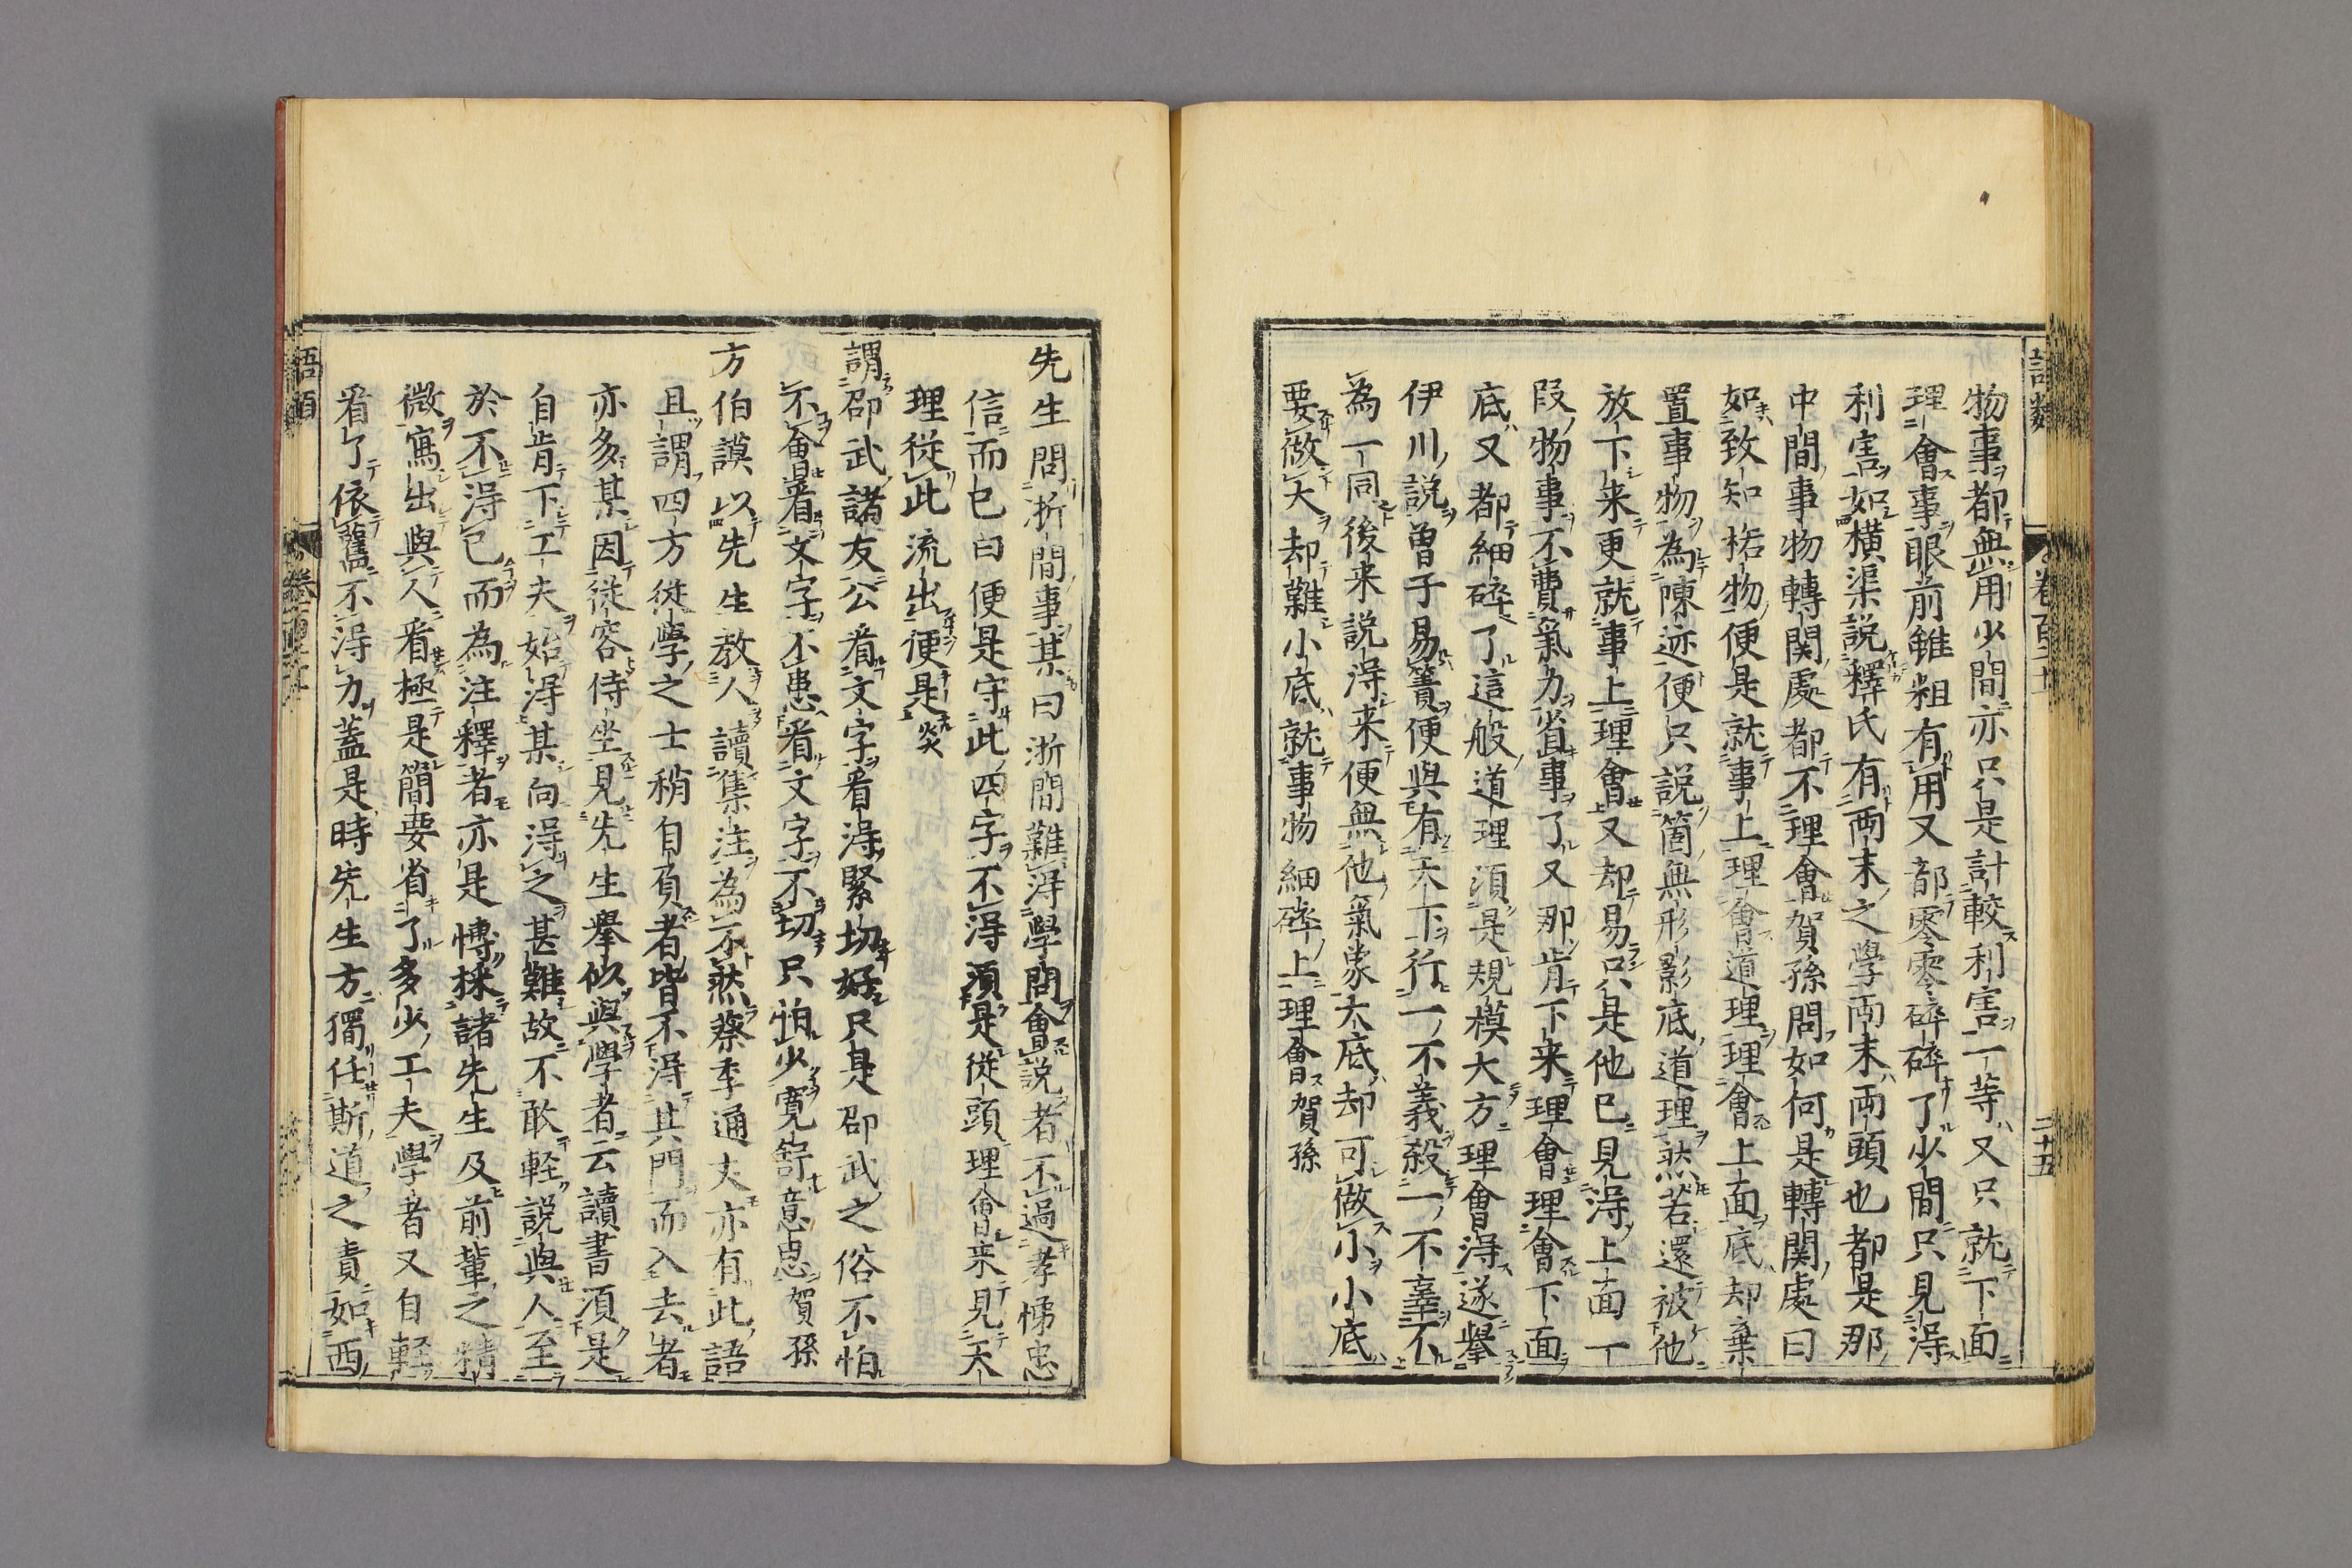 物事都無用少間亦只是計較利害一等又只就下面
理會事眼前雖粗有用又都零零碎碎了少間只見得
利害如橫渠說釋氏有兩末之學兩末兩頭也都是那
中間事物轉關處都不理會賀孫問如何是轉關處曰
如致知格物便是就事上理會道理理會上面底却棄
置事物為陳迹便只說箇無形影底道理然若還被他
放下来更就事上理會又却易只是他已見得上面一
段物事不費氣力省事了又那肯下来理會理會下面
底又都細碎了這般道理須是規模大方理會得遂舉
伊川說曽子易簀便與有天下行一不義殺一不辜不
為一同後来說得来便無他氣象大底却可做小小底
要做大却難小底就事物細碎上理會賀孫
先生問浙間事某曰浙間難得學問會說者不過孝悌忠
信而已曰便是守此四字不得須是從頭理會来見天
理從此流出便是炎
謂邵武諸友公看文字看得緊切好只是邵武之俗不怕
不會看文字不患看文字不切只怕少寬舒意思賀孫
方伯謨以先生教人讀集注為不然蔡季通丈亦有此語
且謂四方從學之士稍自負者皆不得其門而入去者
亦多某因從容侍坐見先生舉似與學者云讀書須是
自肯下工夫始得某向得之甚難故不敢輕說與人至
於不得已而為注釋者亦是博採諸先生及前輩之精
微寫出與人看極是簡要省了多少工夫學者又自輕
看了依舊不得力蓋是時先生方獨任斯道之責如西
語類
卷百二十
二十五
語類